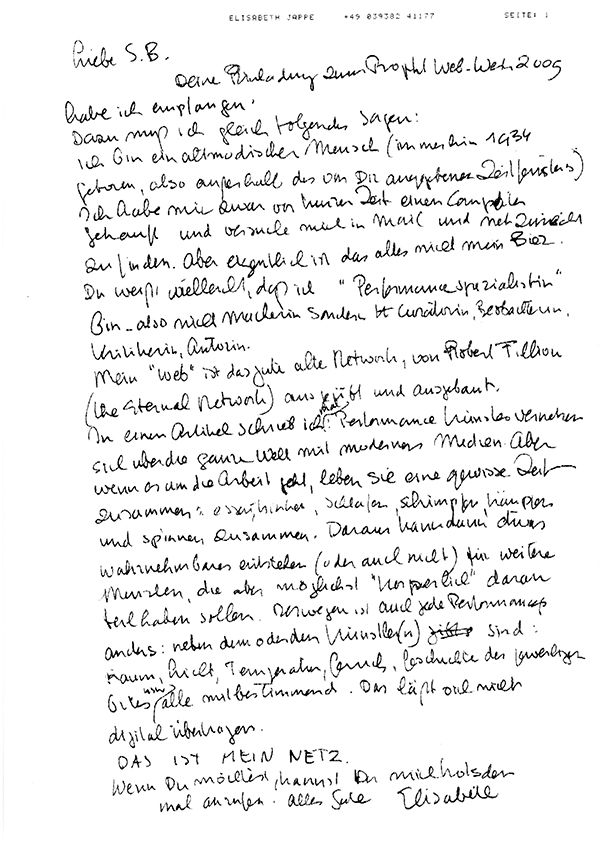 ELISABETH JAPPE +49 039382 41177 SEITE: 1
Liebe S.B.
Deine Einladung zum Projekt Web-Wesen 2009
habe ich empfangen.
Dazu muß ich gleich folgendes sagen:
ich bin ein altmodischer Mensch (immerhin 1934
geboren, also außerhalb des von Dir angegebenen Zeitfensters)
Ich habe mir zwar vor kurzer Zeit einen Computer
gekauft und versuche mich in Mail und net zurecht
zu finden. Aber eigentlich ist das alles nicht mein Bier.
Du weißt vielleicht, daß ich "Performancespezialistin"
bin - also nicht Macherin sondern Curatorin, Beobachterin,
Kritikerin, Autorin.
Mein "Web" ist das gute alte Network, von Robert Fillion
(the Eternal Network) ausgeübt und ausgebaut.
In einen Artikel schrieb ich mal: Performance Künstler vernetzen
sich über die ganze Welt mit modernen Medien. Aber
wenn es um die Arbeit geht, leben sie eine gewisse Zeit
zusammen: essen, trinken, schlafen, schimpfen, kämpfen
und spinnen zusammen. Daraus kann dann etwas
wahrnehmbares entstehen (oder auch nicht) für weitere
Menschen, die aber möglichst "körperlich" daran
teilhaben sollen. Deswegen ist auch jede Performance
anders: neben dem oder den Künstler(n) sind:
Raum, Licht, Temperatur, Geruch, Geschichte des jeweiligen
Ortes usw. alle mitbestimmend. Das läßt sich nicht
digital übertragen.
DAS IST MEIN NETZ.
Wenn Du möchtest, kannst Du mich
mal anrufen. Alles Gute Elisabeth